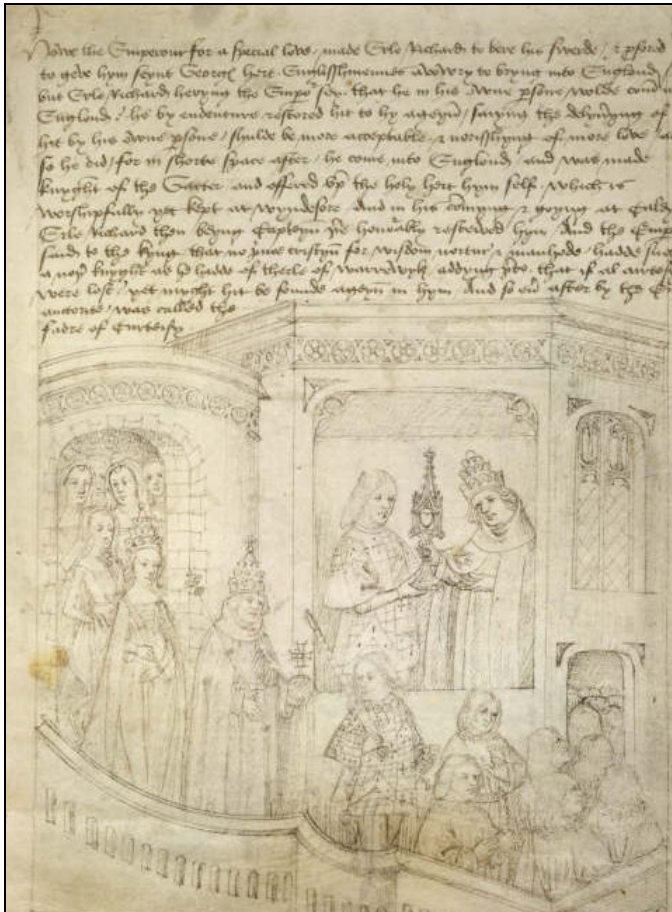 Howe the Emperour for a special love / made Erle Richard to bere his swerde / & pfered
to geve hym seynt Georges hert Englisshmennes advowry to bryng into England
but Erle Richard heryng the Emp'o' sey / that he in his owne psone wolde com in
Englond / he by endenture restored hit to hy ageyn / saiyng the delyvyng of
hit by his owne psone / shulde be more acceptable & norisshyng of more love /
so he did / for in shorte space after / he come into Englond / and was made
knyght of the Garter and offered up the holy hert hym self / which is
worshipfully yet kept at Wyndesore And in his comyng & goyng at
Erle Richard then beyng Capteyn ther honorably resceived hym And the Emp
saide to the kyng that no prince cristyn for wisdom nortur & manhode / hadde
a noþ knyght as he hadde of therle of Warrewyk / addyng therto / that if al
were lost / yet myght hit be founde ageyn in hym And so ev after by the
auctorite / was called the
fadre of Curteisy